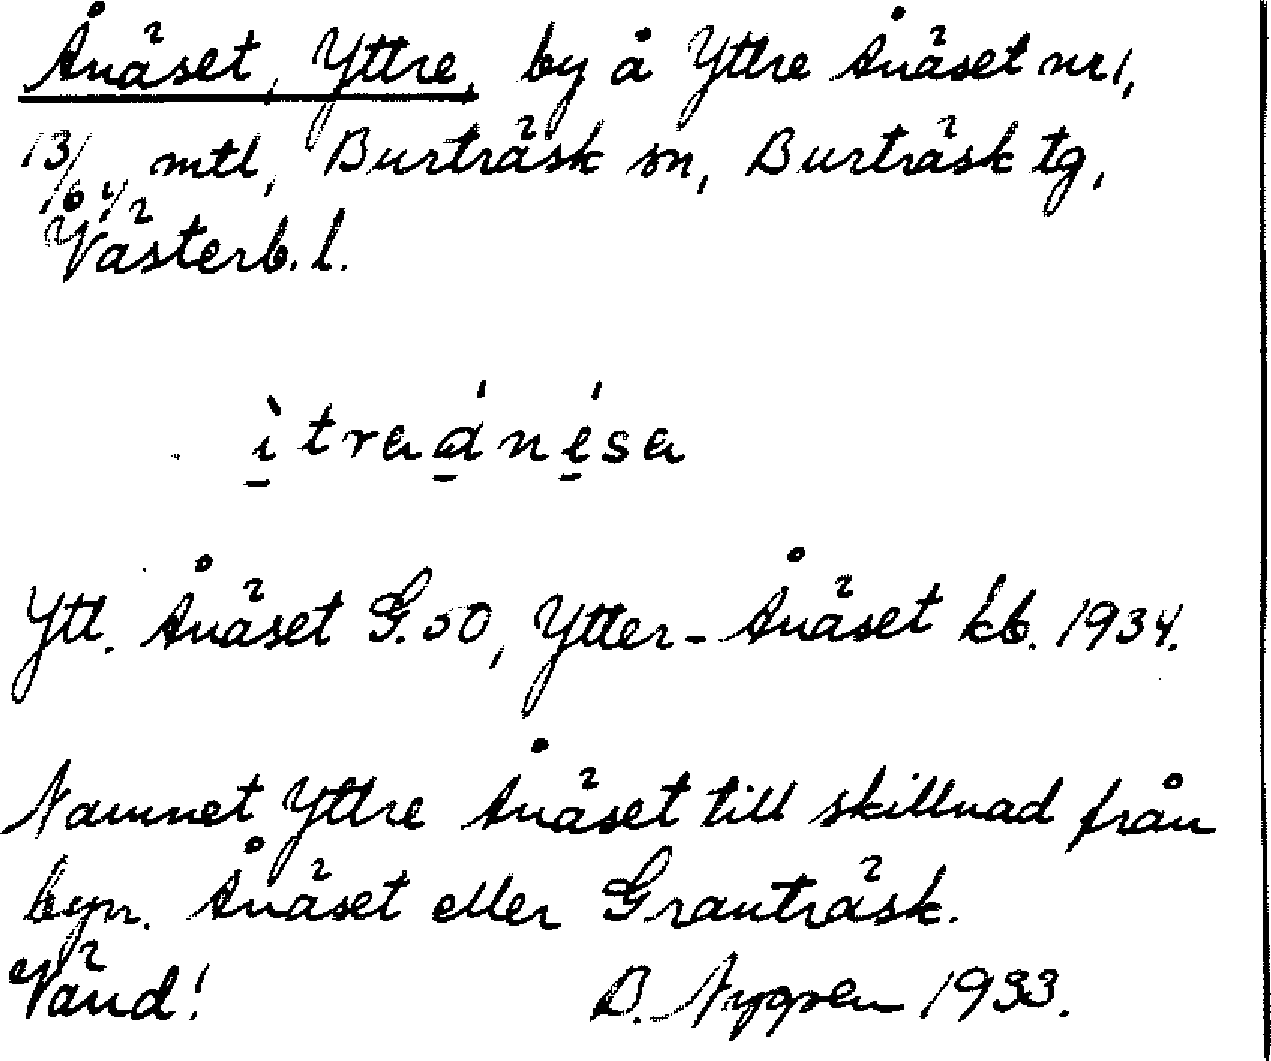 Ånäset, Yttre, by å Yttre Ånäset nr 1,
13/64 mtl, Burträsk sn, Burträsk tg,
Västerb. l.
ìtreánése
Ytt. Ånäset G. 50, Ytter-Ånäset kb. 1934.
Namnet Yttre Ånäset till skillnad från
byn. Ånäset eller Granträsk.
Vänd! B. Nygren 1933.